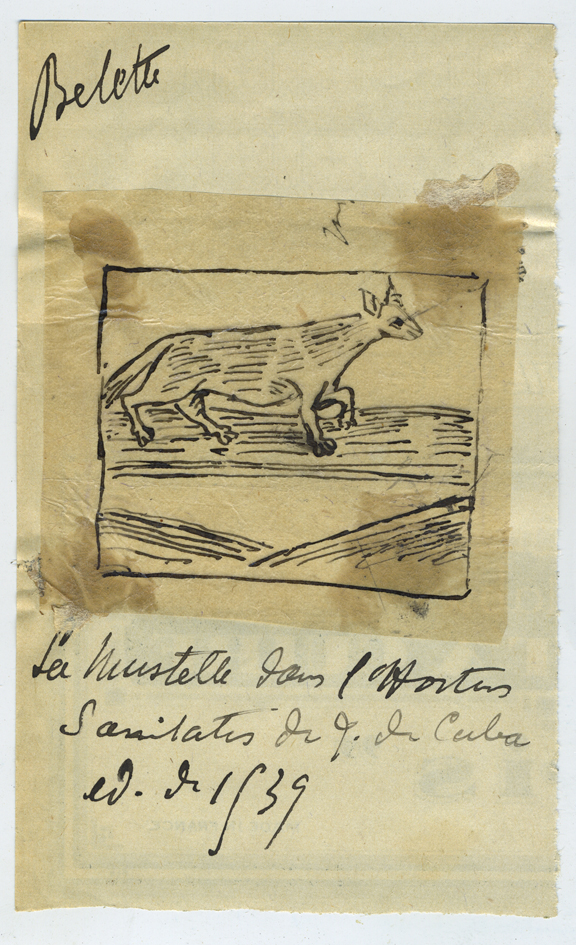 Belette
La Mustelle dans l'Hortus
Sanitatis de J. de Cuba
ed. de 1539